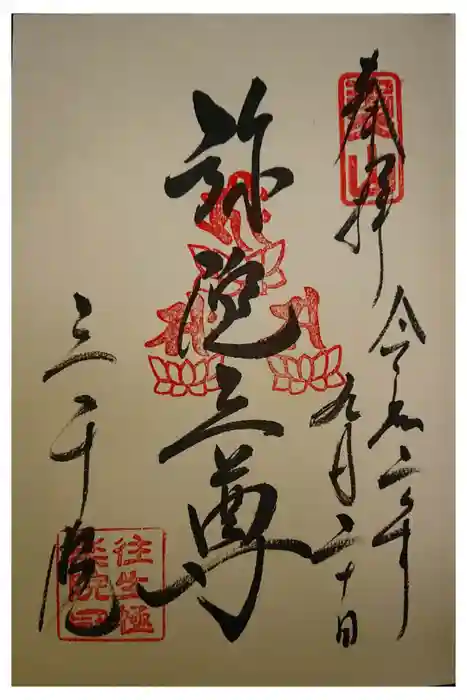 奉拝
令和二年
九月二十日
弥陀三尊
三千院
往生極
楽院印